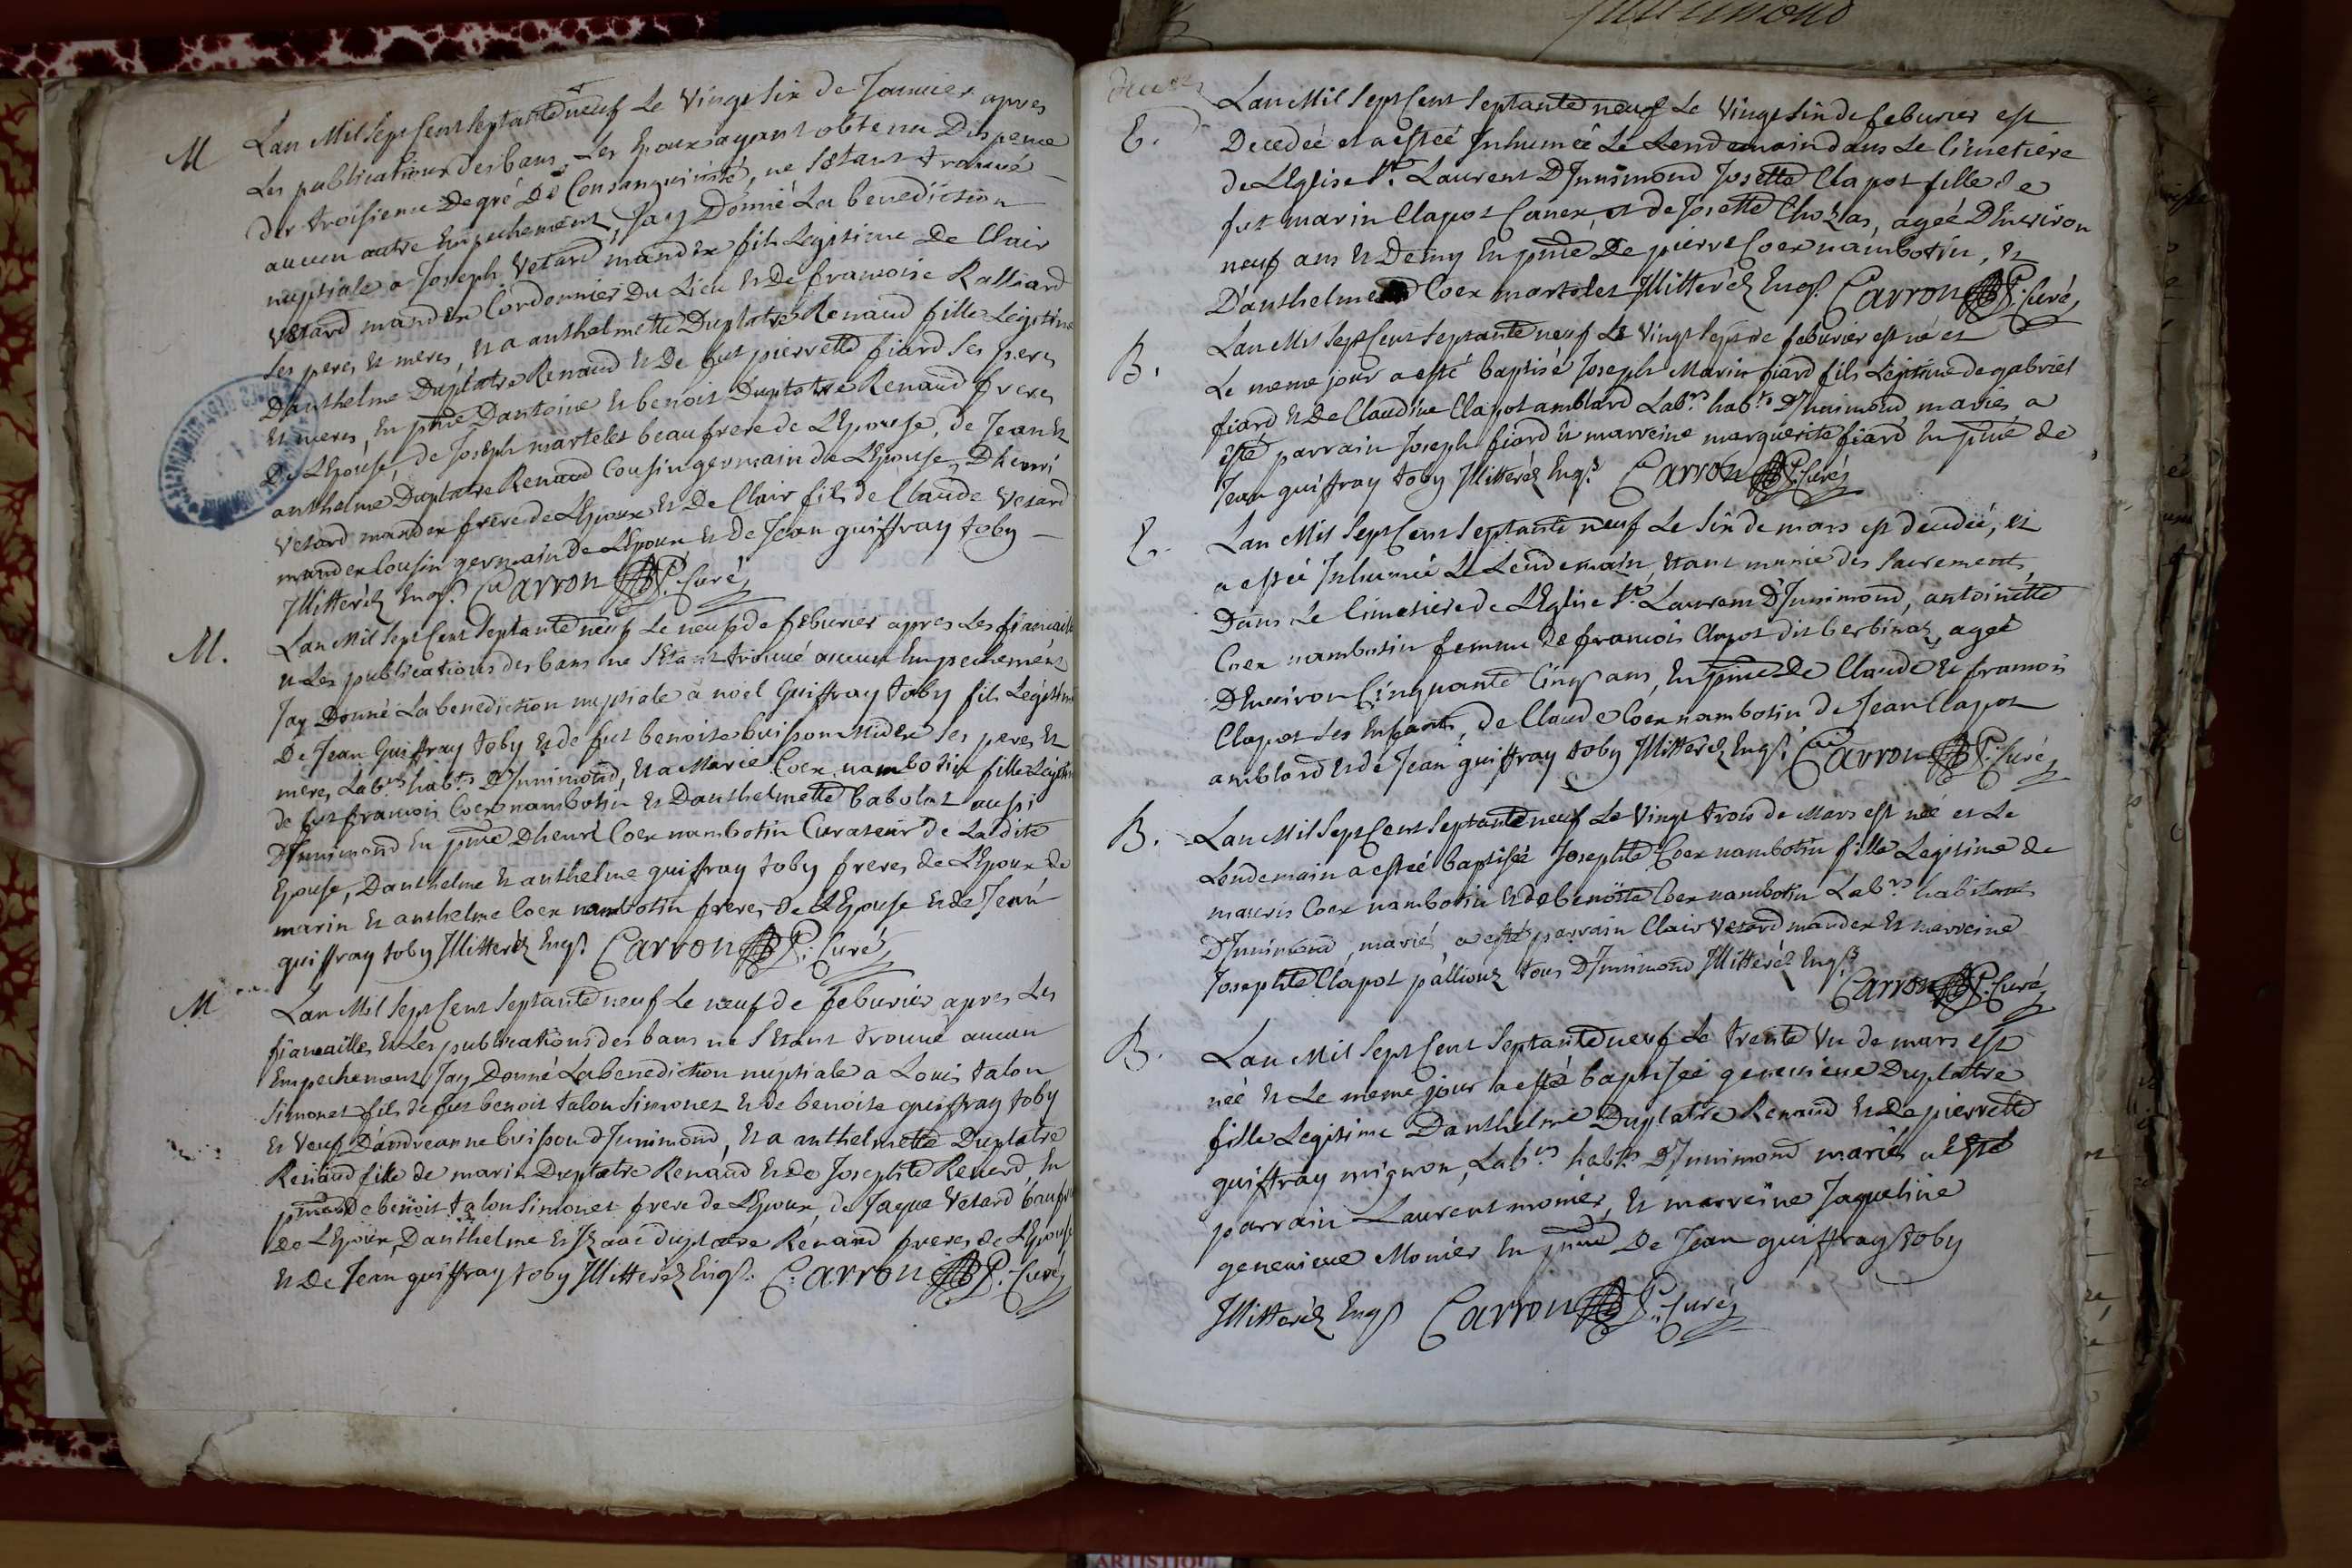 M Lan Mil Sept Cent Septante neuf Le Vingt Six de Janvier apres
Les publications des bans, Les Epoux ayant obtenu Dispence
der troisieme Degré De Consanguinité, ne S'etant trouvé
aucun autre Empechement, Jay Donné La benediction
nuptiale a Joseph Vetard mandex fils Legitime De Clair
Vetard mandex Cordonnier Du Lieu Et De francoise Ralliard
Ses peres et meres, Et a anthelmette Duplatre Renaud fille Legitime
Danthelme Duplatre Renaud Et De fut pierrette fiard Ses peres
Et meres, En pnce Dantoine Et benoit Duplatre Renaud freres
De LEpouse, de Joseph martelet beaufrere de LEpouse, de Jean Et
anthelme Duplatre Renaud Cousin germain de LEpouse, Dhenri
Vetard mandex frere de LEpoux Et De Clair fils de Claude Vetard
mandex Cousin germain de LEpoux Et de Jean guiffray toby
Illitteréz Enqs. Carron P. Curé
M. Lan Mil Sept Cent Septante neuf Le neuf de feburier apres Les fiancailles
Et Les publications des bans ne S'etant trouvé aucun Empechement
Jay Donné La benediction nuptiale à noel Guiffray toby fils Legitime
De Jean Guiffray toby Et de fut benoite buisson Midex Ses peres Et
meres Labrs. habts. D'Innimond, Et a Marie Coex nambotin fille Legitime
de fut francois Coex nambotin Et Danthelmette babolat aussi
D'Innimond En pnce Dhenri Coex nambotin Curateur de Ladite
Epouse, Danthelme Et anthelme guiffray toby freres de LEpoux de
marin Et anthelme Coex nambotin freres de LEpouse Et de Jean
guiffray toby Illitteréz Enqs. Carron P. Curé
M Lan Mil Sept Cent Septante neuf Le neuf de feburier apres Les
fiancailles Et Les publications des bans ne S'etant trouvé aucun
Empechement Jay Donné La benediction nuptiale a Louis talon
Simonet fils de fut benoit talon Simonet Et de benoite guiffray toby
Et Veuf D'andreanne buisson d'Innimond, Et a anthelmette Duplatre
Renaud fille de marin Duplatre Renaud Et de Josephte Reverd, En
pnce De benoit talon Simonet frere de LEpoux, de Jaque Vetard beaufre
de LEpoux, Danthelme Et Izaac duplatre Renaud freres de LEpouse
Et De Jean guiffray toby Illitteréz Enqs. Carron P. Curé
E. Lan Mil Sept Cent Septante neuf Le Vingt Six de feburier est
Decedée et a estée Inhumée Le Lendemain dans Le Cimetiere
de LEglise St. Laurent D'Innimond Josette Clapot fille de
fut marin Clapot Canex et de Josette Chozas, ageé DEnviron
neuf ans Et Demy En pnce De pierre Coex nambotin, Et
Danthelme Coex martelet Illitteréz Enqs. Carron P. Curé
B. Lan Mil Sept Cent Septante neuf Le Vingt Sept de feburier est né et
Le meme jour a esté baptisé Joseph Marin fiard fils Legitime de gabriel
fiard Et de Claudine Clapot amblard Labrs. habts. D'Innimond mariés a
esté parrain Joseph fiard Et marreine marguerite fiard En pnce de
Jean guiffray toby Illitteréz Enqs. Carron P. Curé
E. Lan Mil Sept Cent Septante neuf Le Six de mars est decedée, et
a estée Inhumée Le Lendemain, Etant munie des Sacrements,
Dans Le Cimetiere de LEglise St. Laurent D'Innimond, antoinette
Coex nambotin femme de francois Clapot dit berbinoz, ageé
DEnviron Cinquante Cinq ans, En pnce De Claude Et francois
Clapot Ses Enfants, de Claude Coex nambotin de Jean Clapot
amblard Et de Jean guiffray toby Illitteréz Enqs. Carron P. Curé
B. Lan Mil Sept Cent Septante neuf Le Vingt trois de Mars est née et Le
Lendemain a estée baptisée Josephte Coex nambotin fille Legitime de
mauris Coex nambotin Et de benoitte Coex nambotin Labrs. habitants
D'Innimond mariés a esté parrain Clair Vetard mandex Et marreine
Josephte Clapot pallioux tous D'Innimond Illitteréz Enqs.
Carron P. Curé
B. Lan Mil Sept Cent Septante neuf Le trente Un de mars est
née Et Le meme jour a esté baptisée genevieve Duplatre
fille Legitime Danthelme Duplatre Renaud Et De pierrette
guiffray mignon, Labrs. habts. D'Innimond mariés a Esté
parrain Laurent monier, Et marreine Jaqueline
genevieve Monier En pnce De Jean guiffray toby
Illitteréz Enqs Carron P. Curé